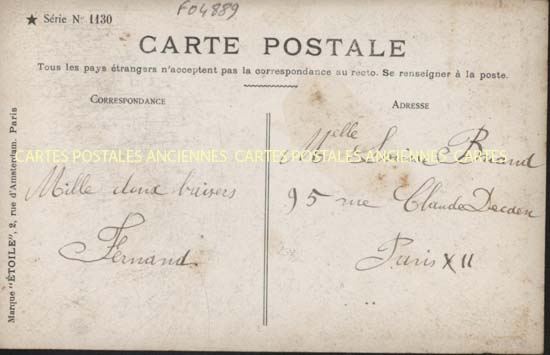 F04889
★ Série N° 1130
CARTE POSTALE
Tous les pays étrangers n'acceptent pas la correspondance au recto. Se renseigner à la poste.
CORRESPONDANCE
ADRESSE
Marque "ÉTOILE", 2, rue d'Amsterdam, Paris
CARTES POSTALES ANCIENNES CARTES POSTALES ANCIENNES CARTES
Mille doux baisers
Fernand
Melle
95 rue Claude Decaen
Paris XII